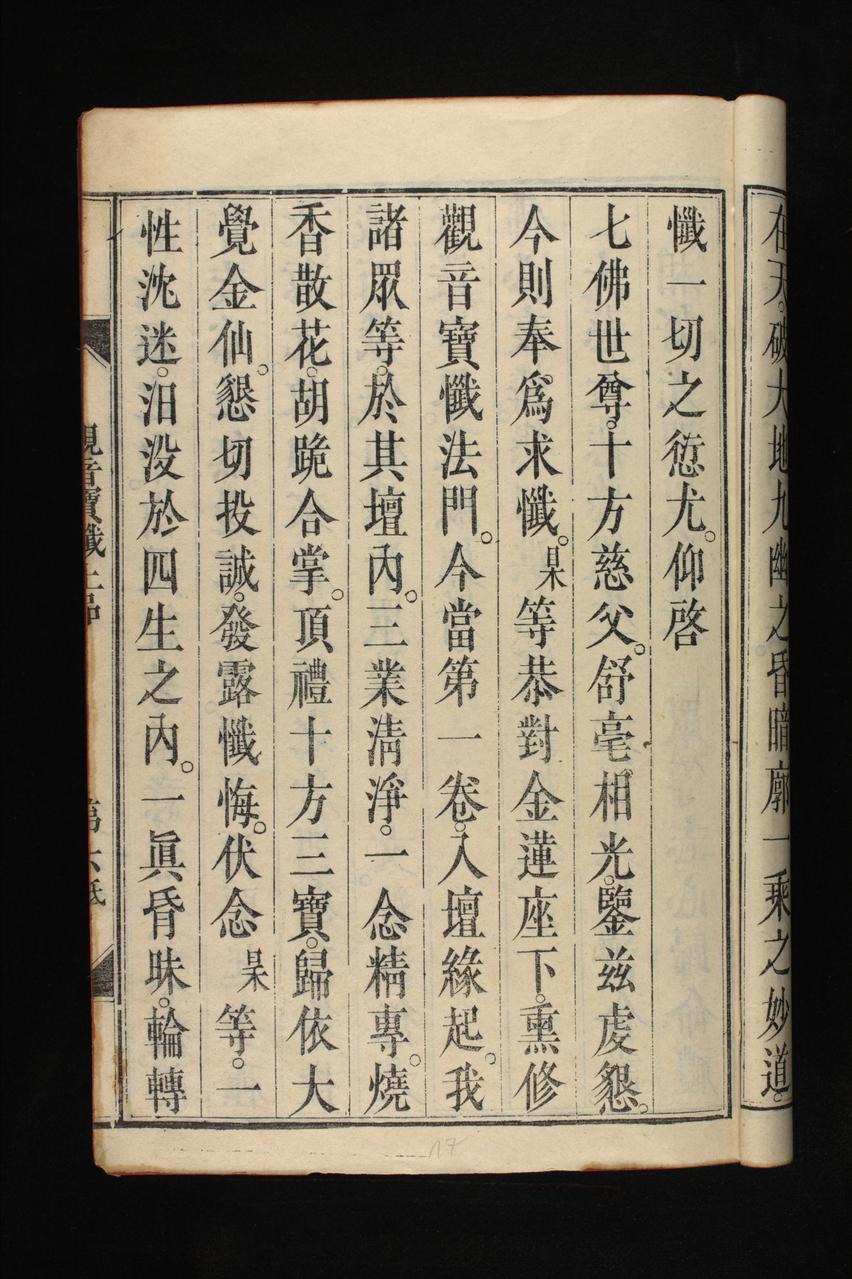 在天。破大地九幽之昏暗廓一乘之妙道。
懺一切之愆尤。仰啓
七佛世尊。十方慈父。舒毫相光。鑒兹虔懇。
今則奉爲求懺。某等恭對金蓮座下。熏修
觀音寶懺法門。今當第一卷。入壇緣起。我
諸眾等。於其壇內。三業清淨。一念精專。燒
香散花。胡跪合掌。頂禮十方三寶。歸依大
覺金仙。懇切投誠。發露懺悔。伏念某等。一
性沈迷。汨没於四生之內。一眞昏昧。輪轉
觀音寶懺上 第六
17